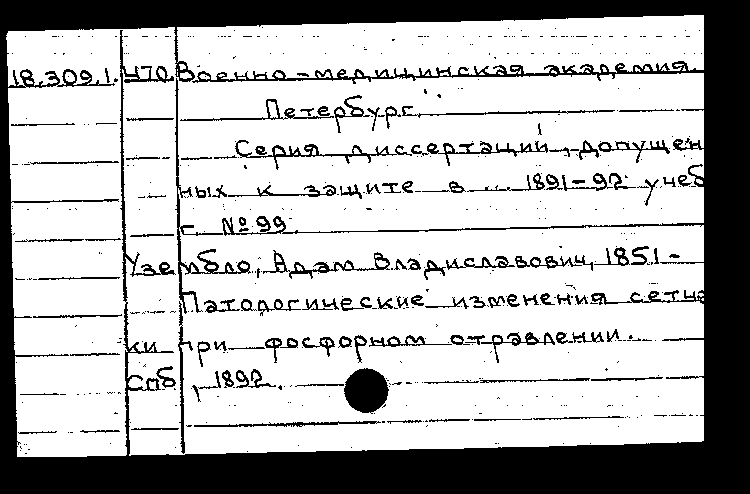 18.309.1. Ч70. Военно-медицинская академия.
Петербург.
Серия диссертаций, допущен
ных к защите в ... 1891-92 учеб
г. №99.
Узембло, Адам Владиславович, 1851-
Патологические изменения сетча
ки при фосфорном отравлении.
Спб, 1892.